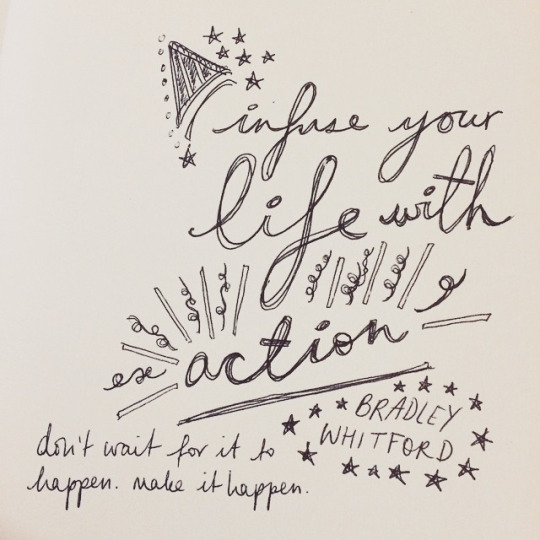 infuse your
life with
action
BRADLEY
WHITFORD
don't wait for it to
happen. make it happen.